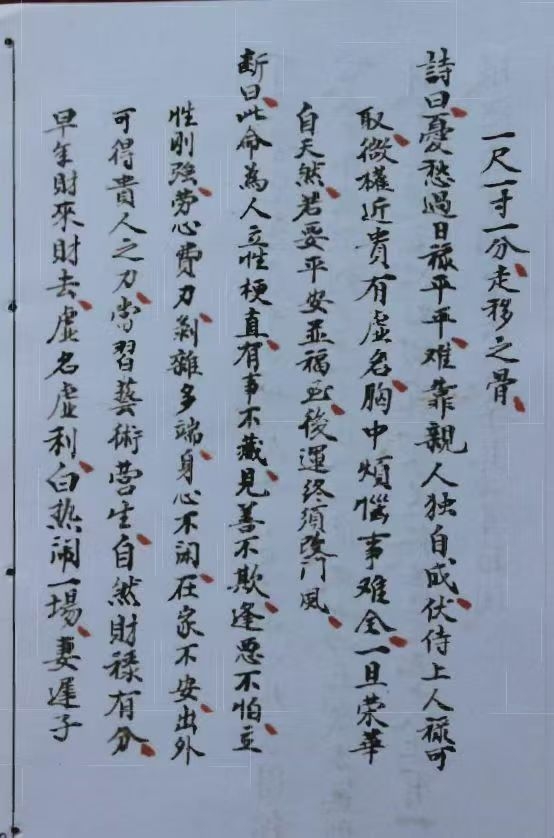 一尺一寸一分、走移之骨、
詩曰、憂愁過日祿平平、难靠親人独自成、伏侍上人祿可
取、微權近貴有虛名、胸中煩惱事难全、一旦荣華
自天然、若要平安並福至、後運终須改门风、
断曰、此命為人立性梗直、有事不藏、見善不欺、逢恶不怕、立
性刚強、劳心費力、剥雜多端、身心不闲、在家不安、出外
可得貴人之力、當習藝術营生、自然財祿有分、
早年財來財去、虛名虛利、白热闹一場、妻遲子